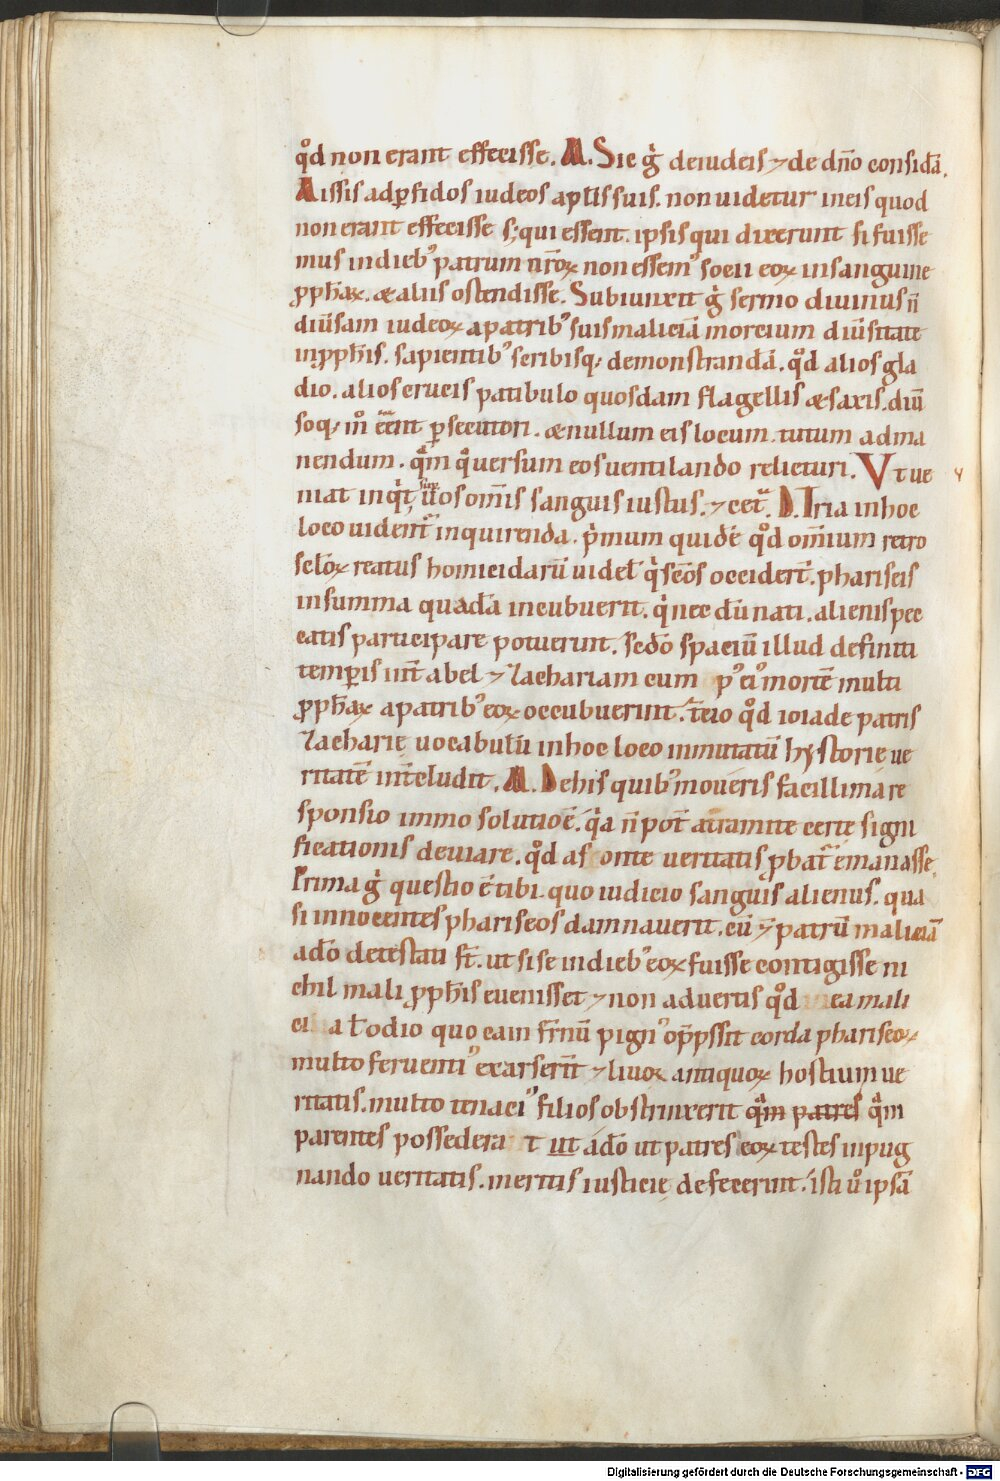 qd̊ non erant effecisse. M. Sic g̊ de iudeis ⁊ de dño considã.
Missis ad ꝑfidos iudeos aplis suis. non uidetur in eis quod
non erant effecisse sꝫ qui essent. ipsis qui dixerunt si fuisse
mus in dieb᾽ patrum nr̄oꝝ non essem᾽ socii eoꝝ in sanguine
ꝓph̄aꝝ. & aliis ostendisse. Subiunxit g̊ sermo diuinus ñ
diũsam iudeoꝝ a patrib᾽ suis maliciã moreium diũsitate
in ꝓph̄is. sapientib᾽ scribisq; demonstrandã. qd̊ alios gla
dio. alios crucis patibulo quosdam flagellis & saxis. diũ
soq; m̊ eent ꝑsecutori. & nullum eis locum. tutum ad ma
nendum. qm̃ q̃uersum eos uentilando relicturi. Vt ue
niat inqt, sup uos om̄is sanguis iustus. ⁊ cet̃. D. Tria in hoc
loco uident̃ inquirenda. p̃mum quidē qd̊ om̄ium retro
sc̄loꝝ reatus homicidarũ uidel᾽ q̃ sc̄os occider̃t. phariseis
in summa quadã incubuerit. q̃ nec dũ nati. alienis pec
catis participare potuerunt. sc̄do spaciũ illud definiti
temꝑis int̃ abel ⁊ Zachariam cum p᾽ ei᾽ mortē multi
ꝓph̄aꝝ a patrib᾽ eoꝝ occubuerunt. t̃cio qd̊ ioiade patris
Zacharię uocabulũ in hoc loco inmutatũ hystorię ue
ritatē int̃cludit. M. De his quib᾽ moueris facillima re
sponsio immo solutio ē. q̃a ñ pot̃ a tramite certe signi
ficationis deuiare. qd̊ a fonte ueritatis ꝓbat̃ emanasse.
Prima g̊ questio ē tibi. quo iudicio sanguis alienus. qua
si innocentes phariseos damnauerit. cũ ⁊ patrũ maliciã
adō detestati st̃. ut si se in dieb᾽ eoꝝ fuisse contigisse ni
chil mali ꝓph̄is euenisset ⁊ non aduertis qd̊ ea mali
ci a t̃ odio quo cain fr̄nũ pign᾽ op̄ps̄sit corda phariseoꝝ
multo feruenti᾽ exarser̃t ⁊ liuor antiquoꝝ hostium ue
ritatis. multo tenaci᾽ filios obstrinxerit qm̃ patres qm̃
parentes possedera t ut adō ut patres eoꝝ testes inpug
nando ueritatis. meritis iusticię defecerunt. isti ů ipsã
Digitalisierung gefördert durch die Deutsche Forschungsgemeinschaft - DFG